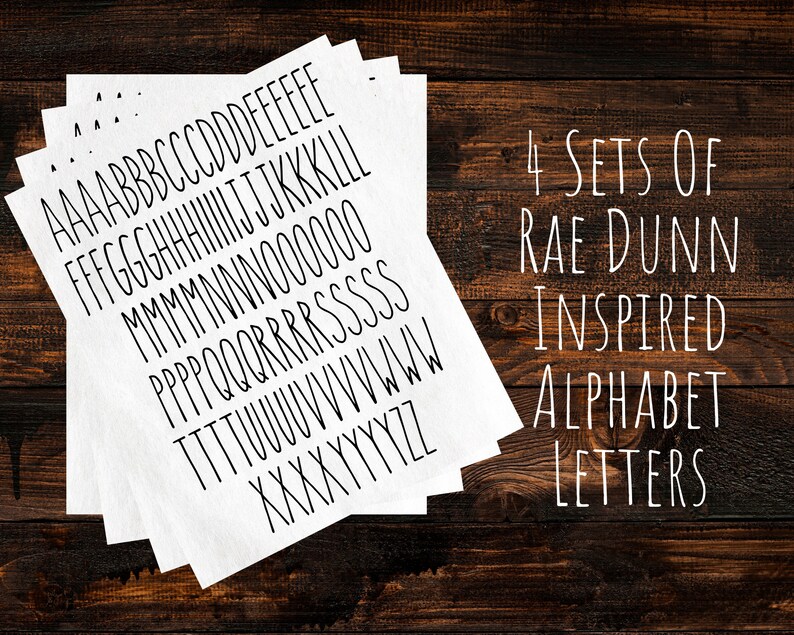 AAAABBBCCCDDDEEEEEE
FFFGGGHHHIIIIIJJJKKKLLL
MMMMNNNNOOOOOO
PPPPQQQRRRRSSSSS
TTTTUUUUVVVVWWWW
XXXXYYYYZZ
4 Sets Of
Rae Dunn
Inspired
Alphabet
Letters